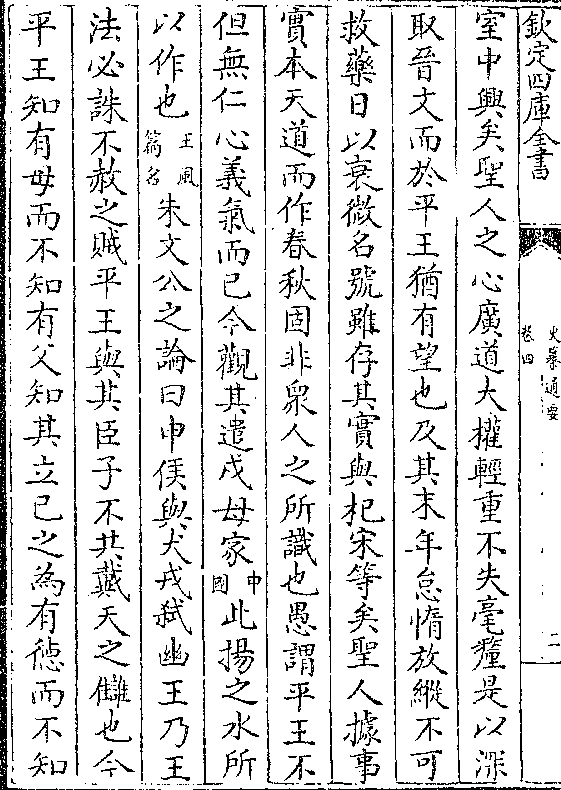 欽定四庫全書
史纂通要
卷四
二
室中興矣聖人之心廣道大權輕重不失毫釐是以深
取晉文而於平王猶有望也及其末年怠惰放縱不可
救藥日以衰微名號雖存其實與杞宋等矣聖人據事
實本天道而作春秋固非衆人之所識也愚謂平王不
但無仁心義氣而已今觀其遣戍母家中國此揚之水所
以作也王風篇名朱文公之論曰申侯與犬戎弑幽王乃王
法必誅不赦之賊平王與其臣子不共戴天之讎也今
平王知有母而不知有父知其立己之為有徳而不知